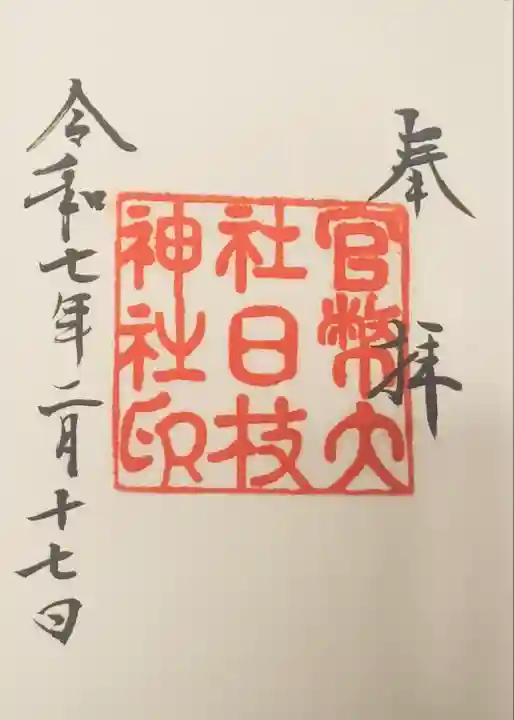 奉拝
官幣大
社日枝
神社印
令和七年二月十七日